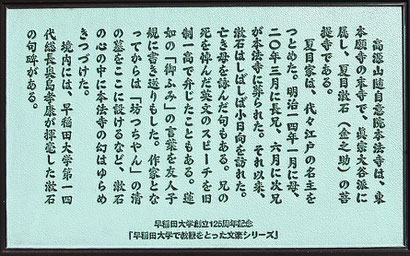 高源山随自意院本法寺は、東
本願寺の末寺で、眞宗大谷派に
属し、夏目漱石(金之助)の菩
提寺である。
夏目家は、代々江戸の名主を
つとめた。明治一四年一月に母、
二〇年三月に長兄、六月に次兄
が本法寺に葬られた。それ以来、
漱石はしばしば小日向を訪れた。
亡き母を詠んだ句もある。兄の
死を悼んだ英文のスピーチを旧
制一高で弁じたこともある。蓮
如の「御ふみ」の言葉を友人子
規に書き送りもした。作家とな
ってからは「坊っちやん」の清
の墓をここに設けるなど、漱石
の心の中に本法寺の幻はゆらめ
きつづけた。
境内には、早稲田大学第一四
代総長奥島孝康が揮毫した漱石
の句碑がある。
早稲田大学創立125周年記念
「早稲田大学で教鞭をとった文豪シリーズ」